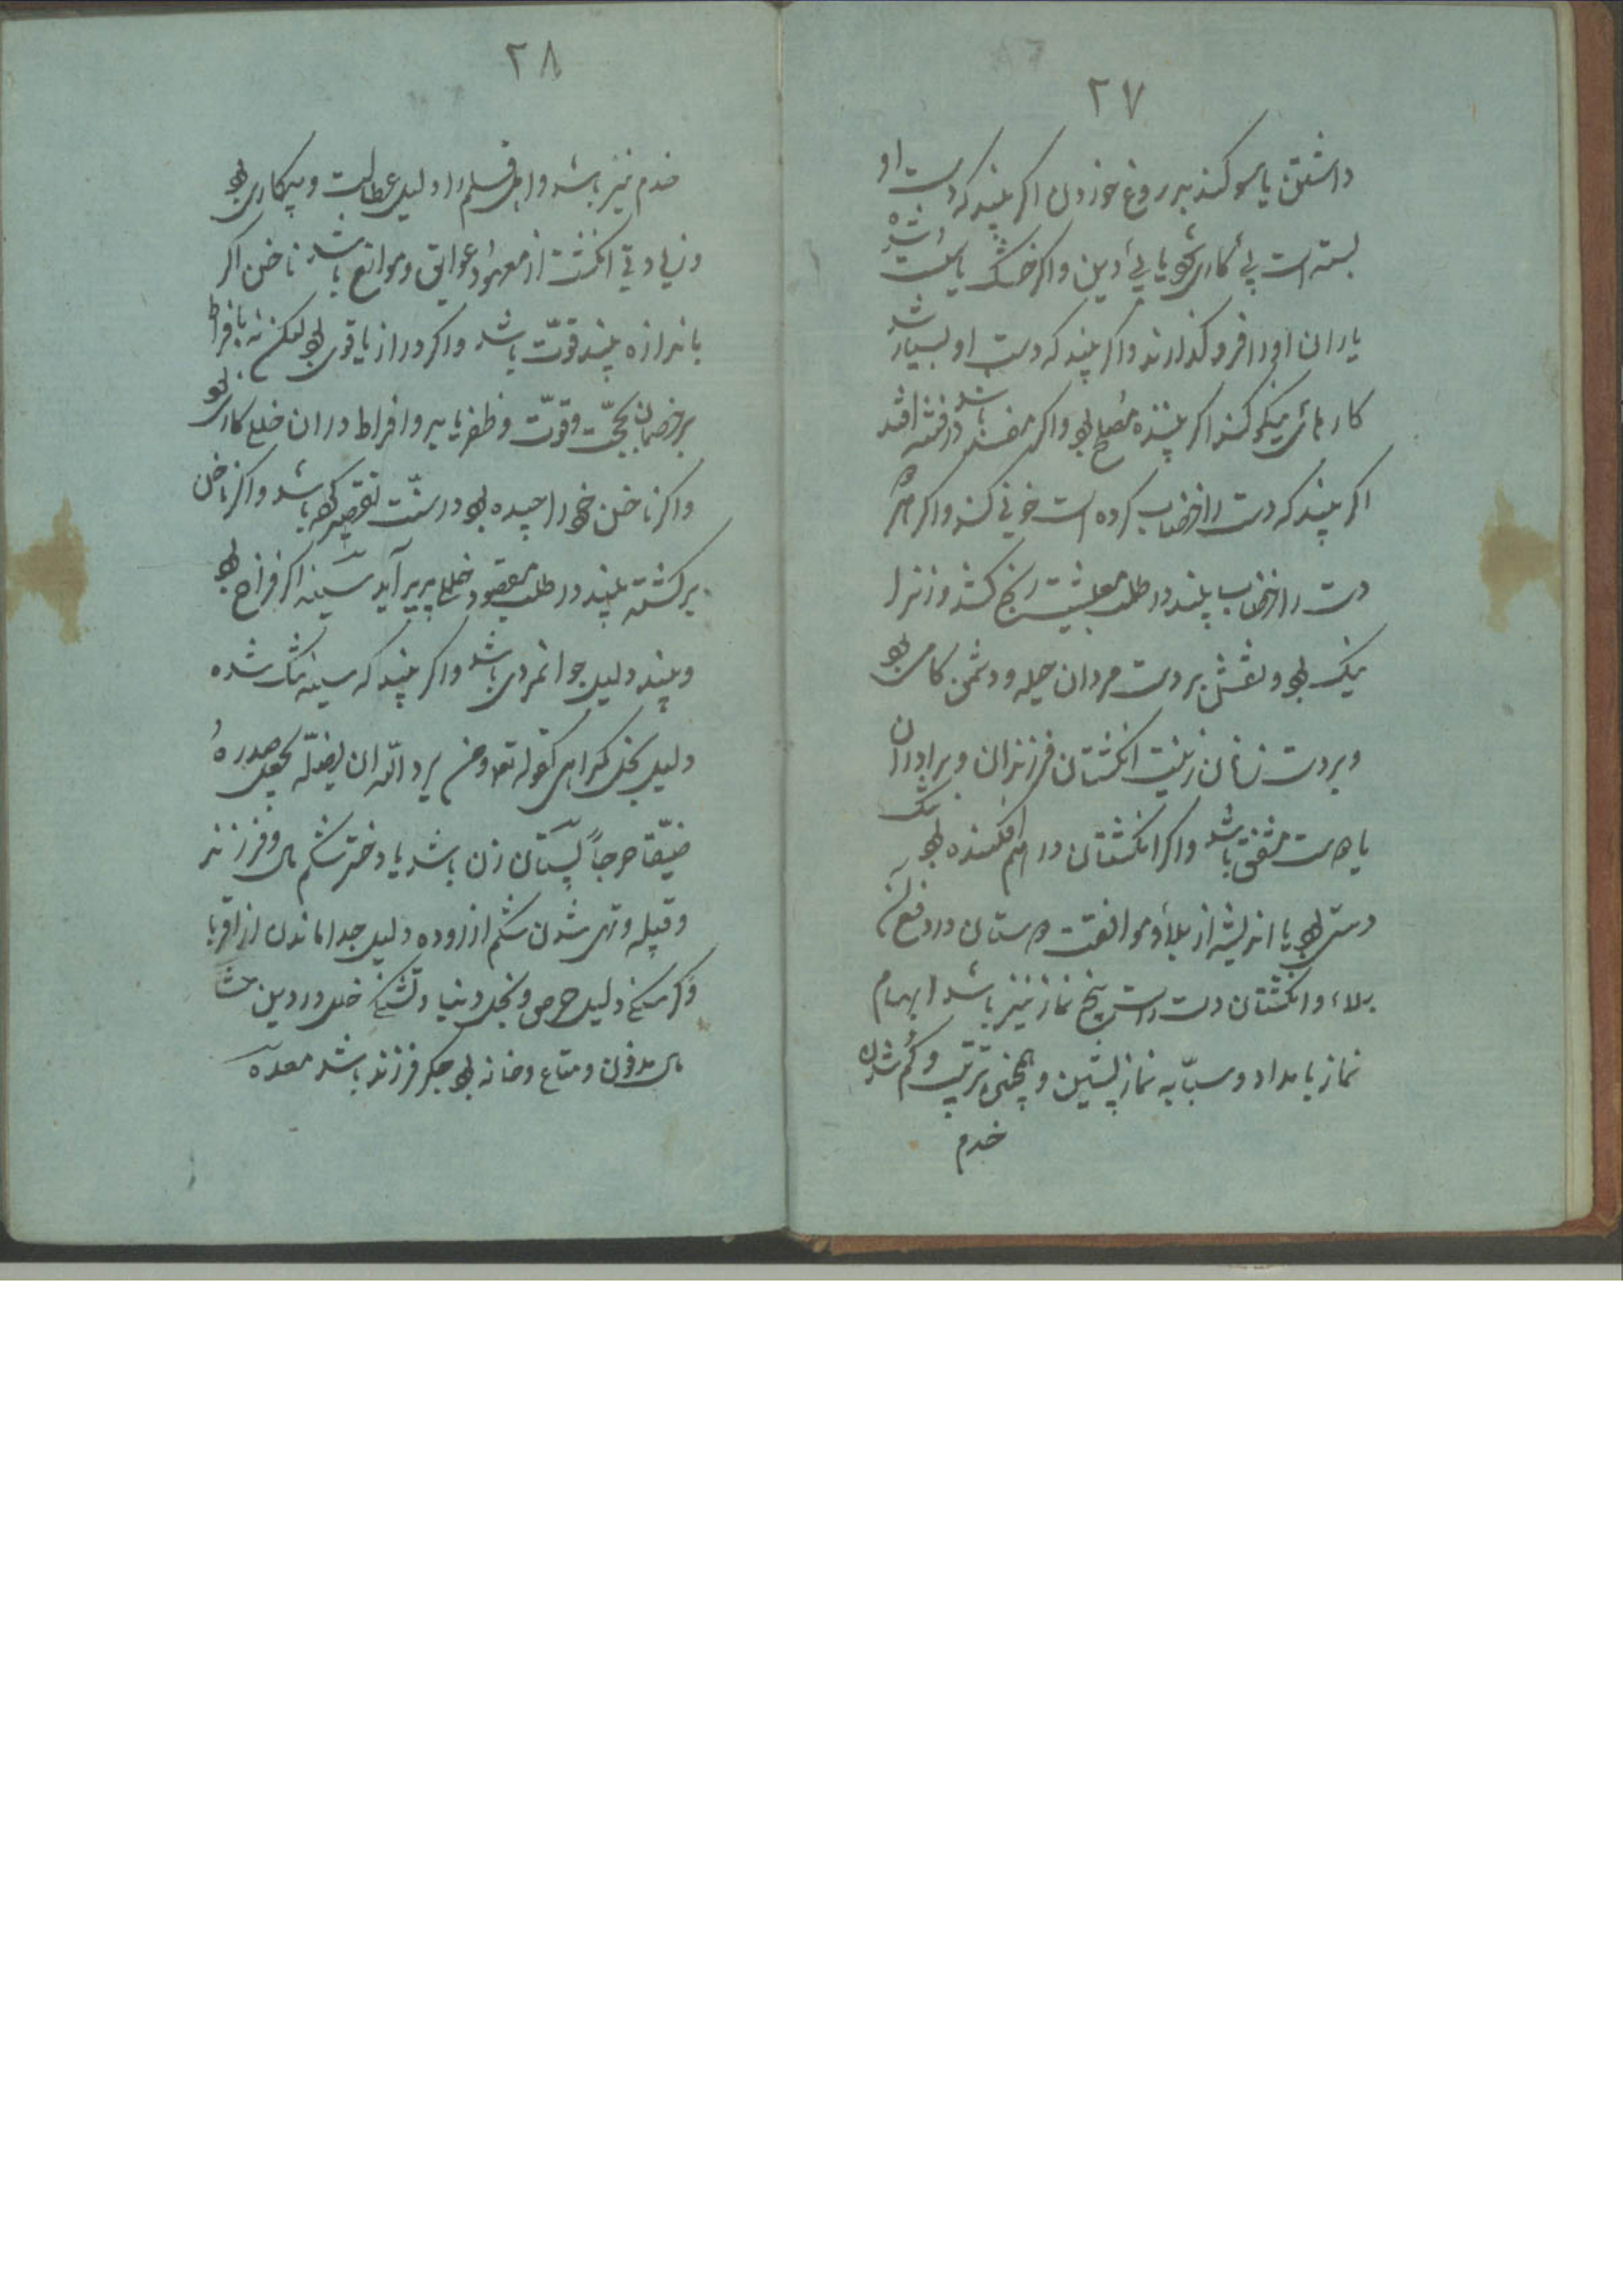 ۲۷
داشتن یا سوکند بدروغ خوردن اکر بیند که دست او
بسته است بی کاری شود یا بی دین و اکر خشک یا شده
یاران او را فرو کذارند و اکر بیند که دست او بسیار شد
کارهای نیکو کند اکر بیننده مصلح بود و اکر مفسد باشد در فتنه افتد
اکر بیند که دست را خضاب کرده است خونی کند و اکر هر
دست را خضاب بیند در طلب معیشت رنج کشد و زنرا
نیک بود و نقش بر دست مردان حیله و دشمن کامی بود
و بر دست زنان زینت انکشتان فرزندان و برادران
یا دوست مشفق باشد و اکر انکشتان در هم افکنده بود تنک
دستی بود یا اندیشه از بلا و موافقت دوستان در دفع آن
بلاء و انکشتان دست راست پنج نماز نیز باشد ابهام
نماز بامداد و سبّابه نماز پیشین و همچنین ترتیب و کم شدن
خدم
۲۸
خدم نیز باشد و اهل قلم را دلیل عطالت و بیکاری بود
و زیادتی انکشت از معهود عوایق و موانع باشد ناخن اکر
باندازه بیند قوّت باشد و اکر دراز یا قوی بود لیکن نه بافراط
بر خصمان بحجّت و قوّت و ظفر یابد و افراط در ان خلع کاری بود
و اکر ناخن خود را چیده بود در سنّت تقصیر کرده باشد و اکر ناخن
برکشته بیند در طلب مقصود خللی پدید آید سینه اکر فراخ بود
و بیند دلیل جوانمردی باشد و اکر بیند که سینه تنک شده
دلیل بخل و کمراهی کقوله تع و من یرد الله ان یضلّه یجعل صدرهُ
ضیّقا حرجاً پستان زن باشد یا دختر شکم مال و فرزند
و قبیله و تهی شدن شکم از روده دلیل جدا ماندن از اقربا
و کرسنکی دلیل حرص و بخل دنیا و تشنکی خلل در دین
مال مدفون و متاع و خانه بود جکر فرزند باشد معده